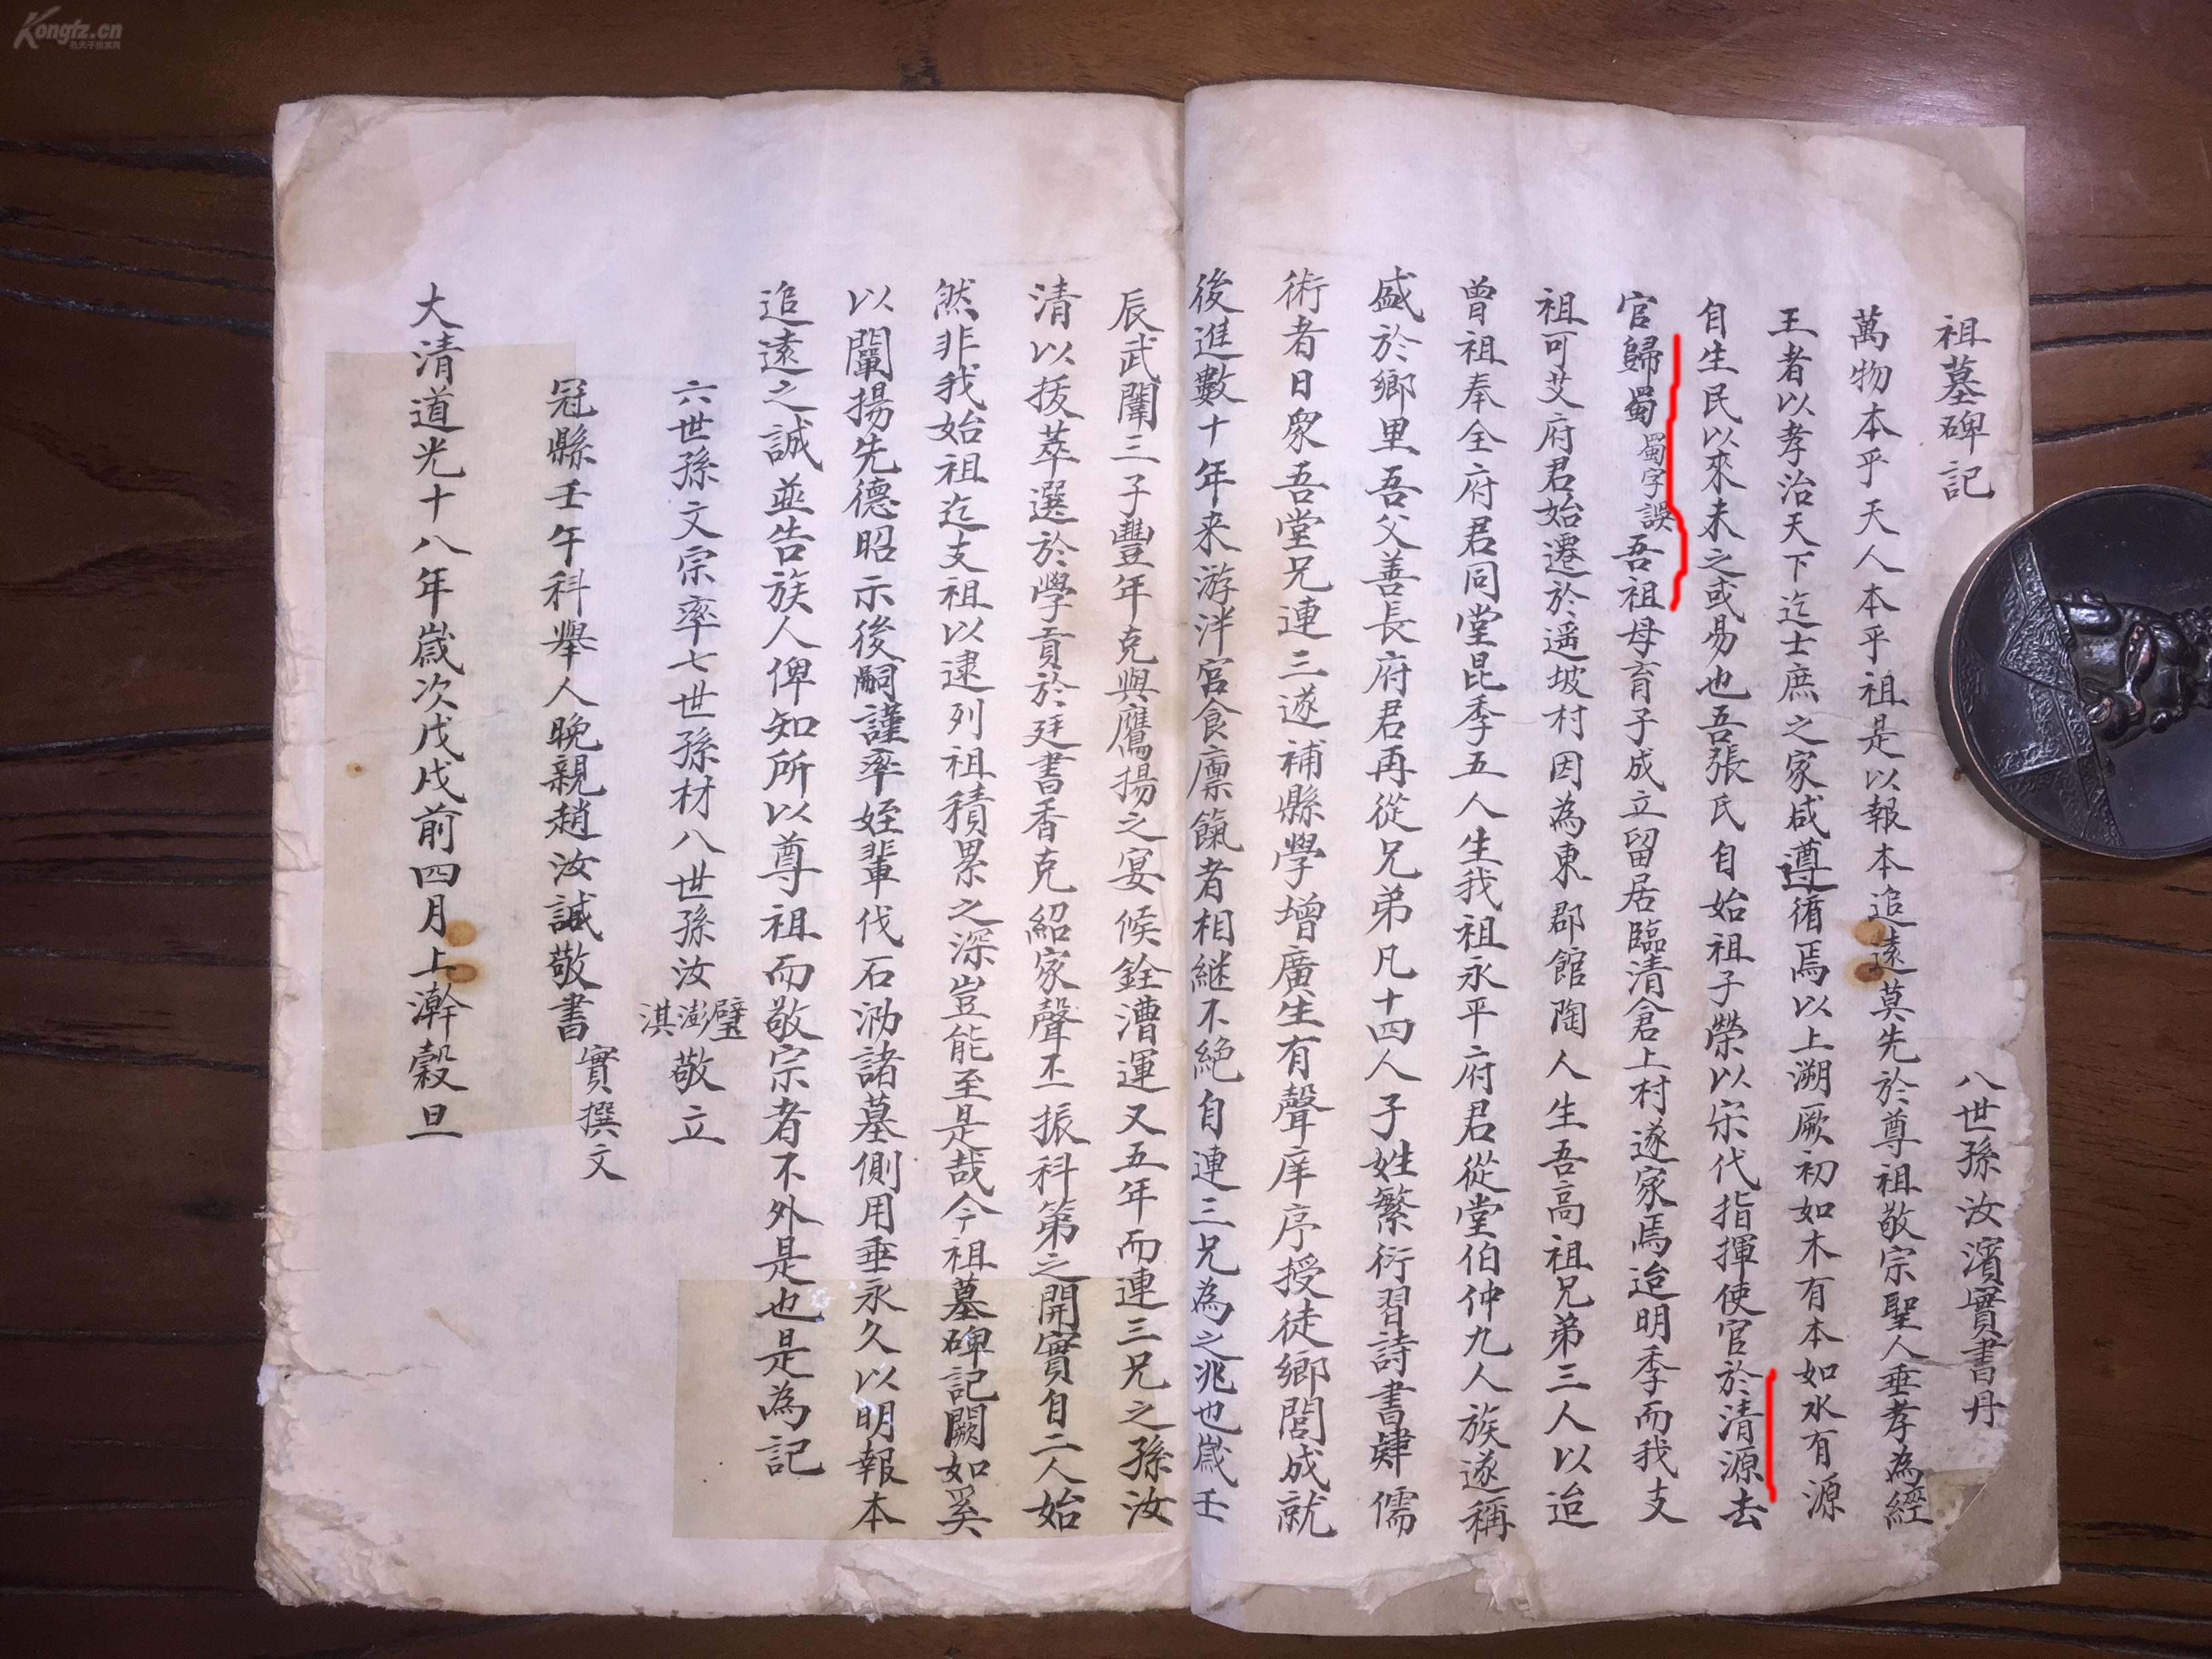 Kongfz.cn
孔夫子旧书网
祖墓碑記
八世孫汝濱實書丹
萬物本乎天人本乎祖是以報本追遠莫先於尊祖敬宗聖人垂孝為經
王者以孝治天下迄士庶之家咸遵循焉以上溯厥初如木有本如水有源
自生民以來未之或易也吾張氏自始祖子榮以宋代指揮使官於清源去
官歸蜀蜀字誤吾祖母育子成立留居臨清倉上村遂家焉迨明季而我支
祖可艾府君始遷於遥坡村因為東郡館陶人生吾高祖兄弟三人以迨
曾祖奉全府君同堂昆季五人生我祖永平府君從堂伯仲九人族遂稱
盛於鄉里吾父善長府君再從兄弟凡十四人子姓繁衍習詩書肄儒
術者日衆吾堂兄連三遂補縣學增廣生有聲庠序授徒鄉閭成就
後進數十年来游泮宮食廪餼者相継不絶自連三兄為之兆也歲壬
辰武闈三子豐年克與鷹揚之宴候銓漕運又五年而連三兄之孫汝
清以拔萃選於學貢於廷書香克紹家聲丕振科第之開實自二人始
然非我始祖迄支祖以逮列祖積累之深豈能至是哉今祖墓碑記闕如奚
以闡揚先德昭示後嗣謹率姪輩伐石泐諸墓側用垂永久以明報本
追遠之誠並告族人俾知所以尊祖而敬宗者不外是也是為記
六世孫文宗率七世孫材八世孫汝璧澎淇敬立
實撰文
冠縣壬午科舉人晚親趙汝誠敬書
大清道光十八年歲次戊戌前四月上澣穀旦